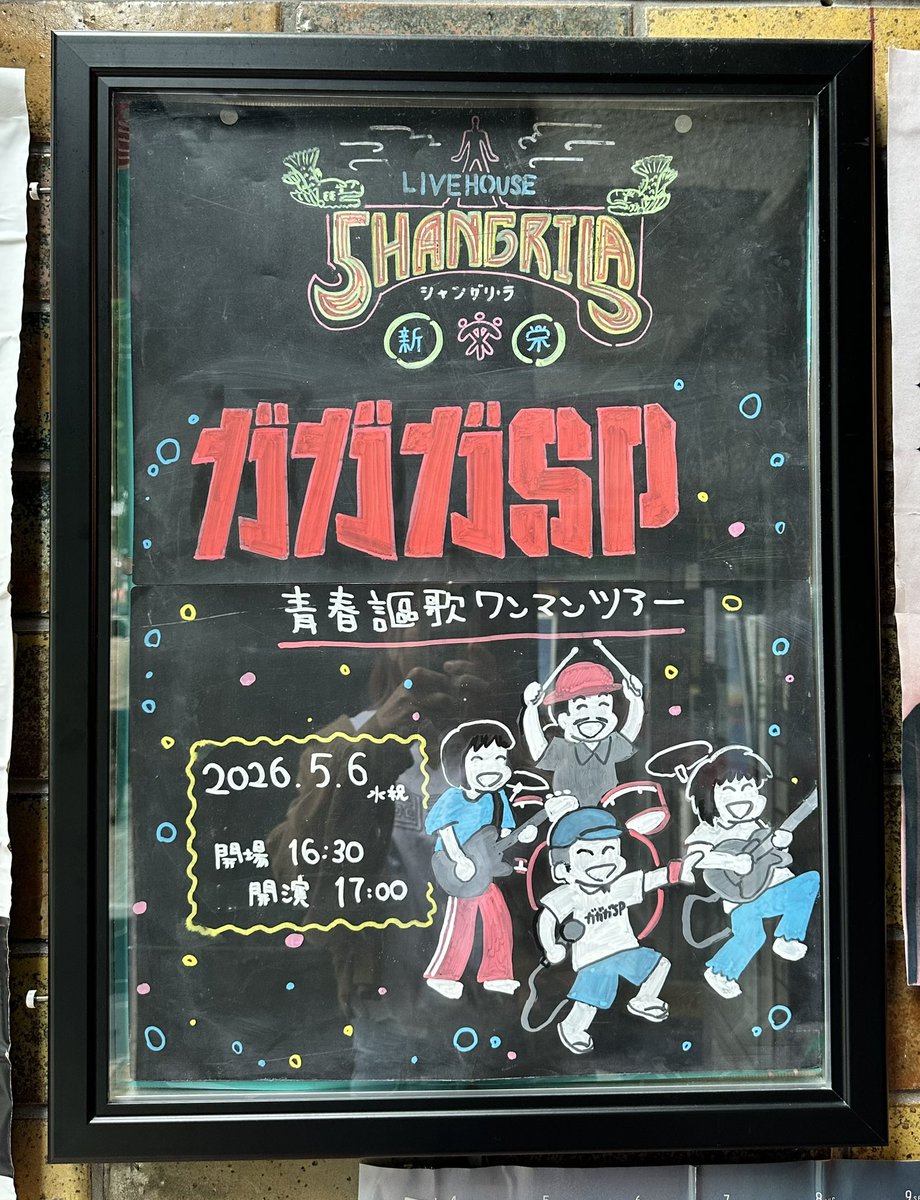 LIVEHOUSE
SHANGRILA
シャングリ・ラ
新 栄
ガガガSP
青春謳歌ワンマンツアー
2026.5.6 水祝
開場 16:30
開演 17:00
ガガガSP